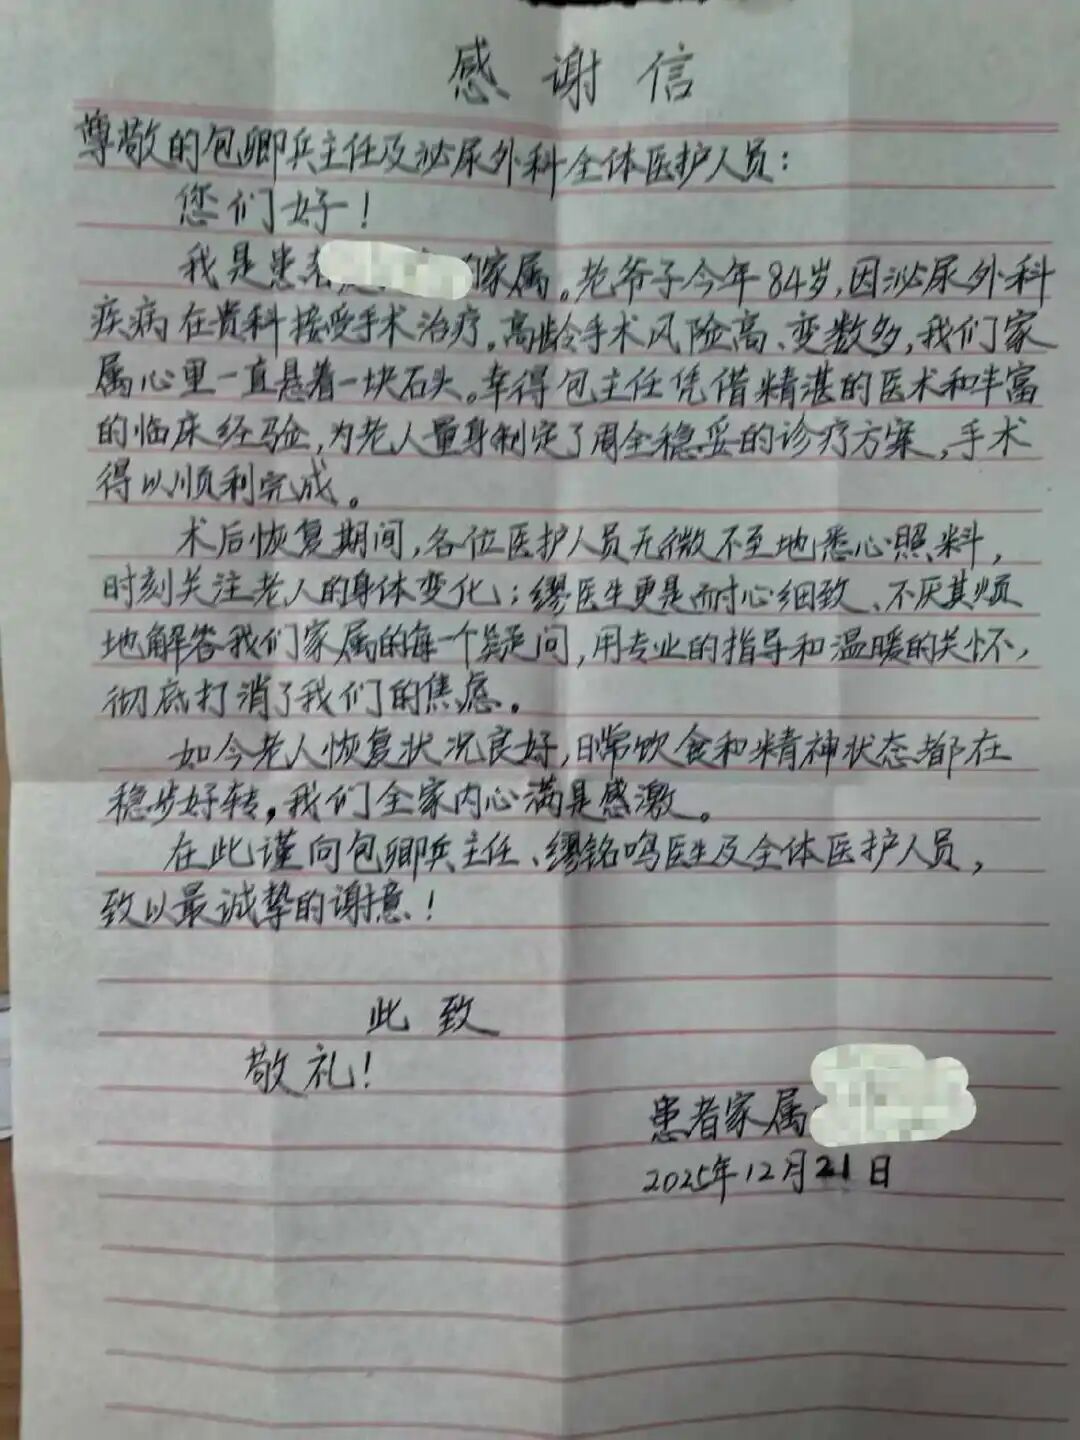 感谢信
尊敬的包卿兵主任及泌尿外科全体医护人员：
您们好！
我是患者 的家属。老爷子今年84岁，因泌尿外科
疾病在贵科接受手术治疗。高龄手术风险高、变数多，我们家
属心里一直悬着一块石头。幸得包主任凭借精湛的医术和丰富
的临床经验，为老人量身制定了周全稳妥的诊疗方案，手术
得以顺利完成。
术后恢复期间，各位医护人员无微不至地悉心照料，
时刻关注老人的身体变化；缪医生更是耐心细致、不厌其烦
地解答我们家属的每一个疑问，用专业的指导和温暖的关怀，
彻底打消了我们的焦虑。
如今老人恢复状况良好，日常饮食和精神状态都在
稳步好转，我们全家内心满是感激。
在此谨向包卿兵主任、缪铭鸣医生及全体医护人员，
致以最诚挚的谢意！
此致
敬礼！
患者家属
2025年12月21日